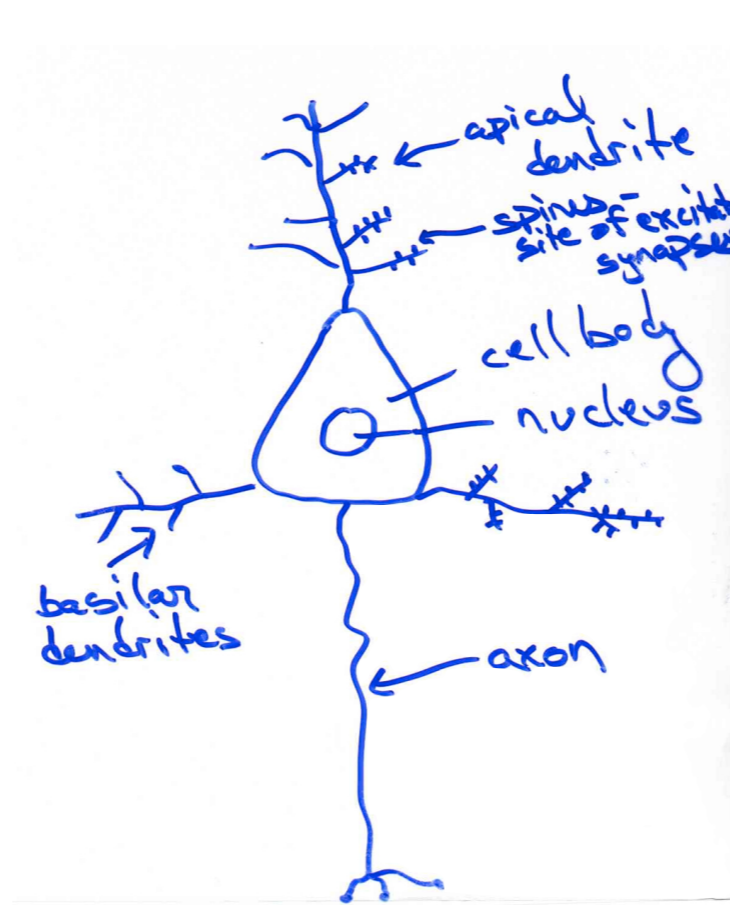 apical
dendrite
spines-
site of excitat
synapse
cell body
nucleus
basilar
dendrites
axon